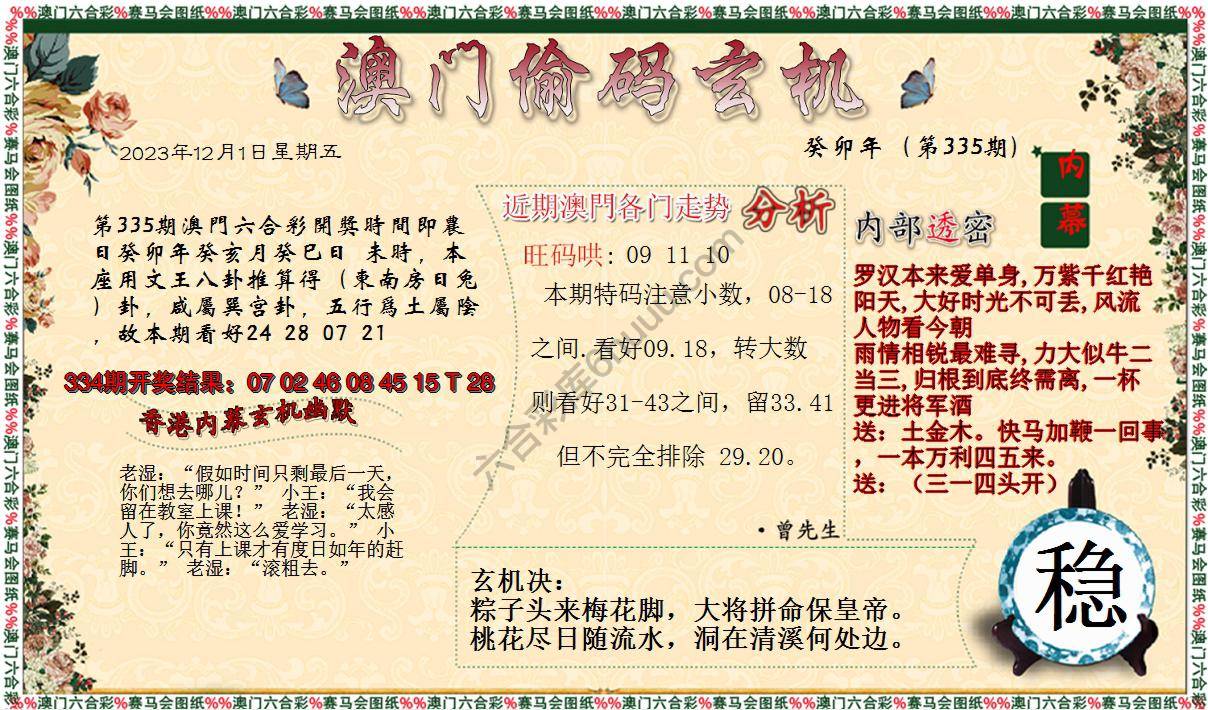 %%澳门六合彩%赛马会图纸%%澳门六合彩%赛马会图纸%%澳门六合彩%赛马会图纸%%澳门六合彩%赛马会图纸%%澳门六合彩%赛马会图纸%%澳门六合彩%赛马会图纸%%
澳门偷码玄机
2023年12月1日星期五
癸卯年（第335期）
内幕
第335期澳門六合彩開獎時間即農
日癸卯年癸亥月癸巳日 未時，本
座用文王八卦推算得（東南房日兔
）卦，咸屬巽宫卦，五行爲土屬陰
，故本期看好24 28 07 21
334期开奖结果：07 02 46 08 45 15 T 28
香港内幕玄机幽默
老湿：“假如时间只剩最后一天，
你们想去哪儿？” 小王：“我会
留在教室上课！” 老湿：“太感
人了，你竟然这么爱学习。” 小
王：“只有上课才有度日如年的赶
脚。” 老湿：“滚粗去。”
近期澳門各门走势 分析
旺码哄: 09 11 10
本期特码注意小数，08-18
之间.看好09.18，转大数
则看好31-43之间，留33.41
但不完全排除 29.20。
·曾先生
内部透密
罗汉本来爱单身,万紫千红艳
阳天,大好时光不可丢,风流
人物看今朝
雨情相锐最难寻,力大似牛二
当三,归根到底终需离,一杯
更进将军酒
送：土金木。快马加鞭一回事
，一本万利四五来。
送：（三一四头开）
玄机决：
粽子头来梅花脚，大将拼命保皇帝。
桃花尽日随流水，洞在清溪何处边。
稳